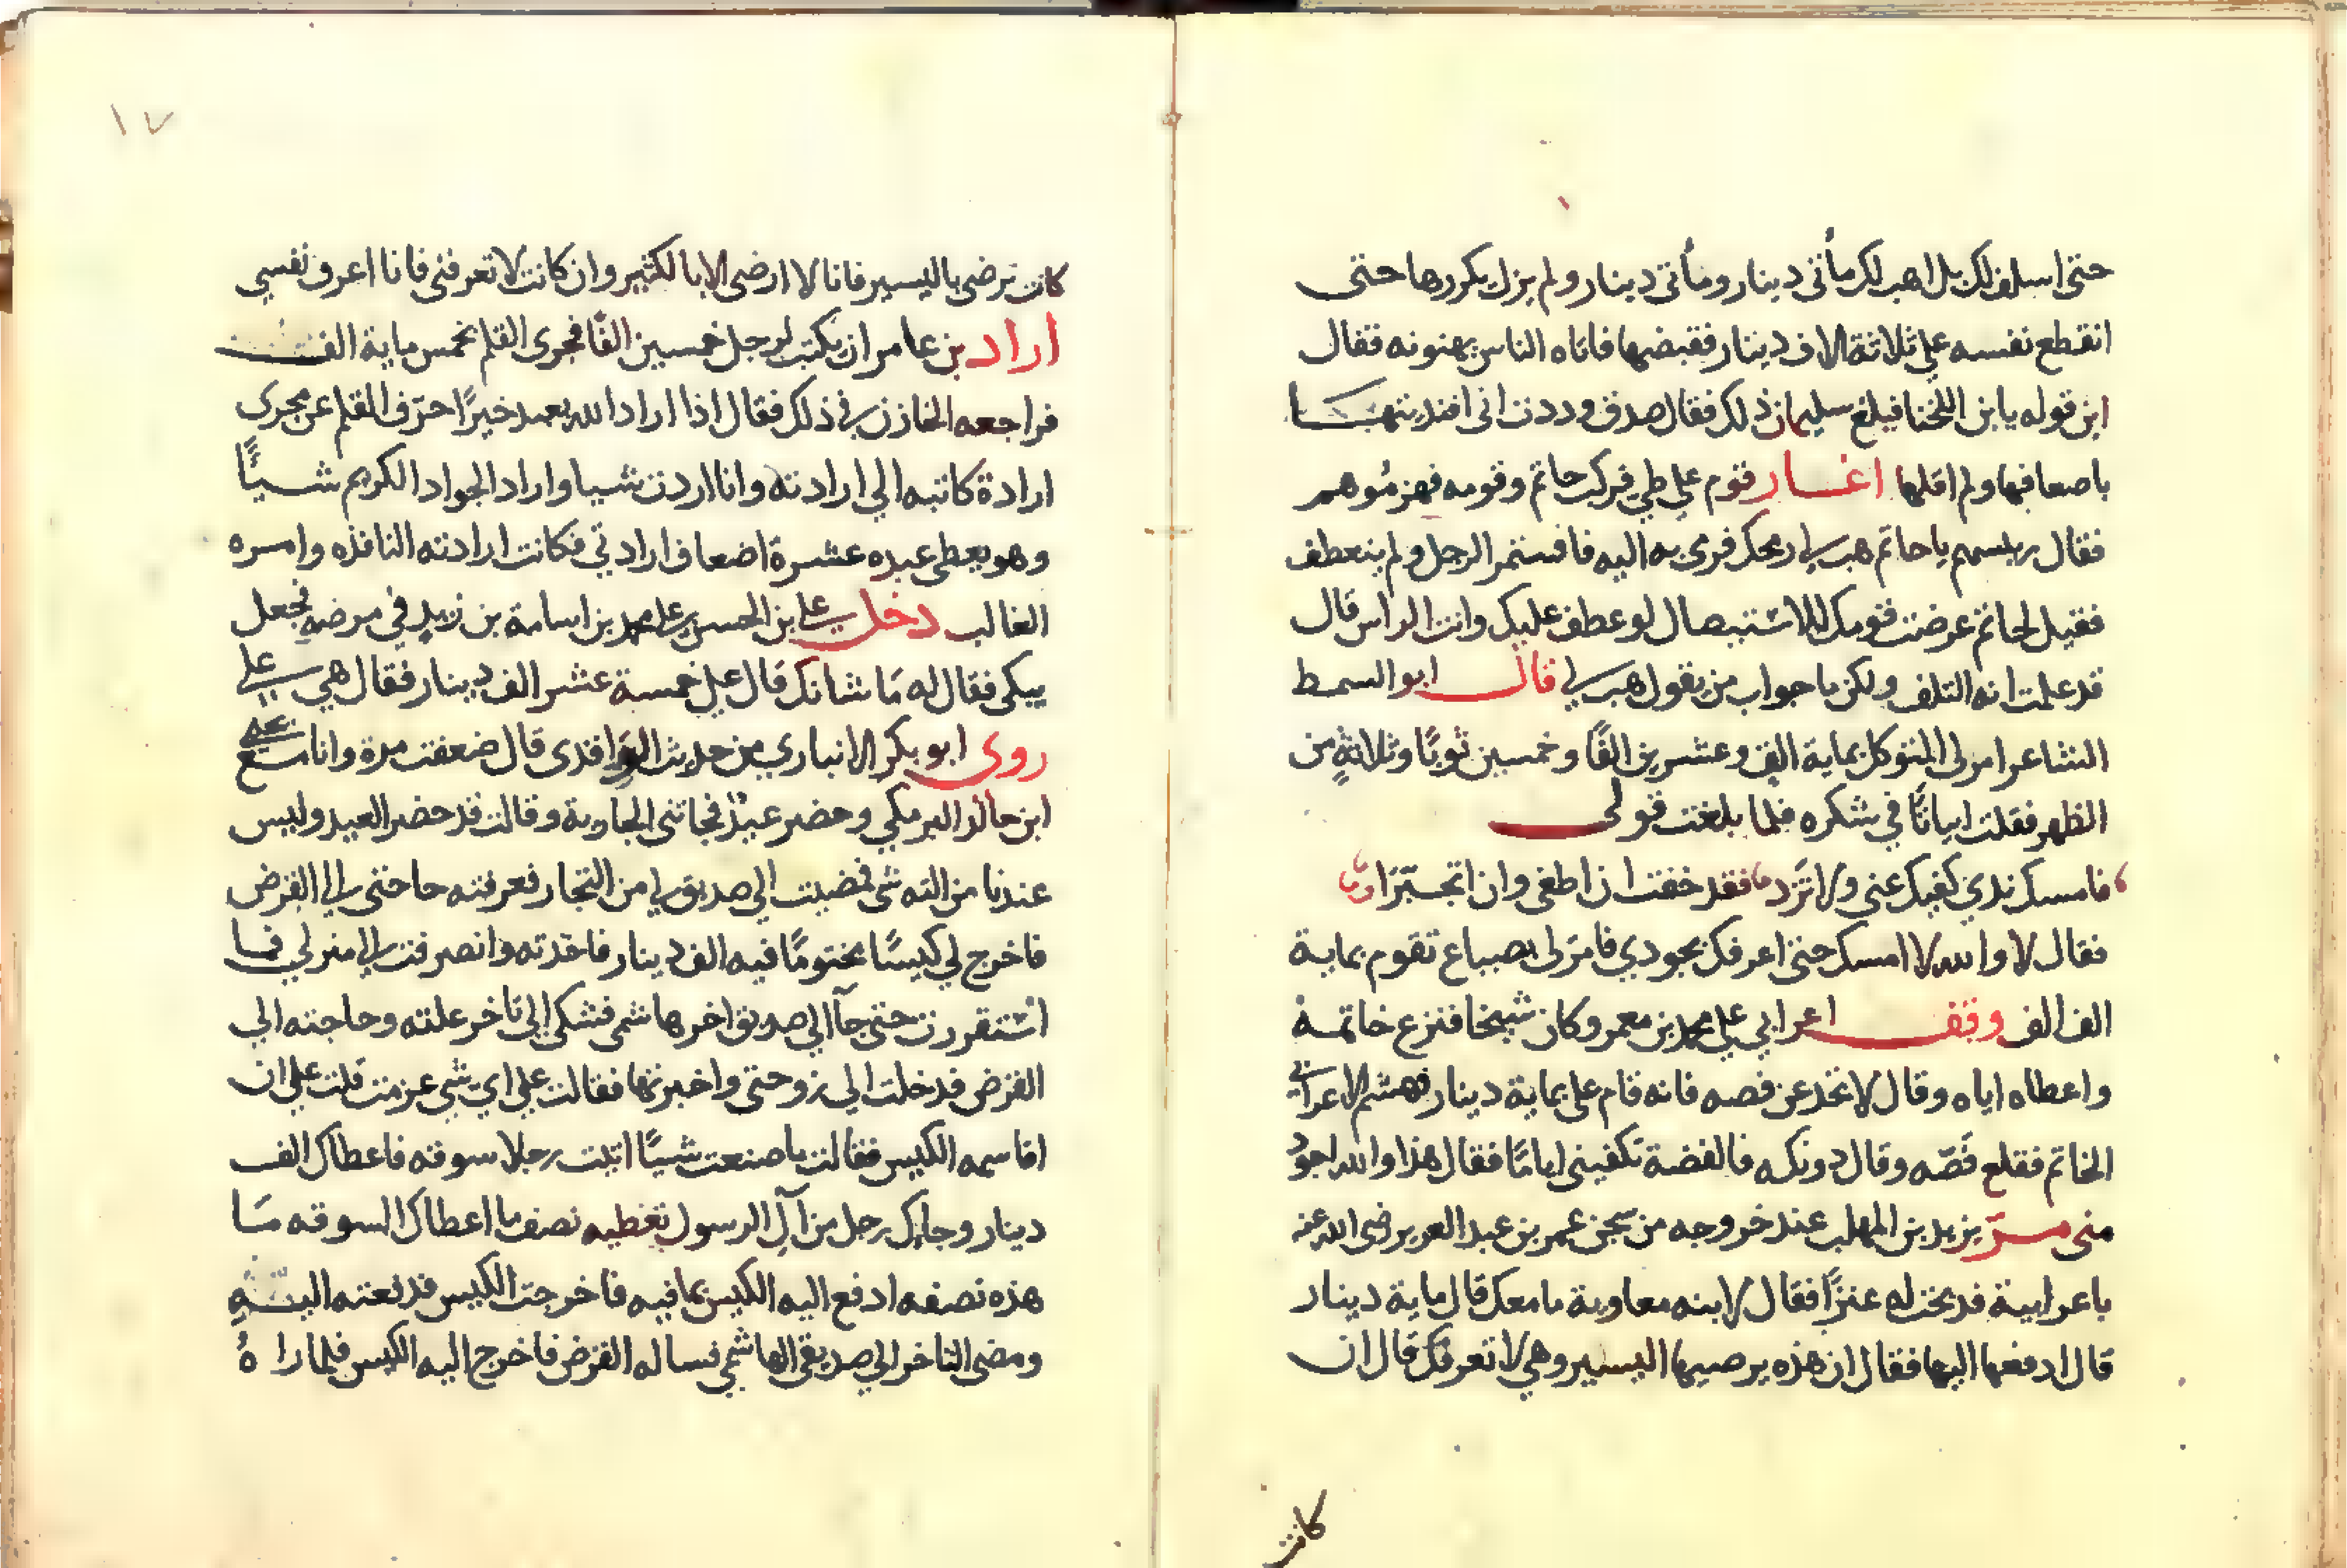 حتى اسلف لك بل اهب لك مأتى دينار ومأتى دينار ولم يزل يكررها حتى
انقطع نفسه على ثلاثة الاف دينار فقبضها فاتاه الناس يهنونه فقال
ابن قوله يا بن اللخنا فبلغ سليمان ذلك فقال صدق وددت انى افتديتها
باضعافها ولم اقلها اغار قوم على طي فركب حاتم وقومه فهزموهم
فقال ريسهم يا حاتم هب لي رمحك فرمى به اليه فاستمر الرجل ولم ينعطف
فقيل لحاتم عرضت قومك للاستيصال لو عطف عليك وانت الراس قال
قد علمت انه التلف ولكن ما جواب من يقول هب لي قال ابو السمط
الشاعر امر لى المتوكل بماية الف وعشرين الفا وخمسين ثوبا وثلاثة من
الظهر فقلت ابياتا في شكره فلما بلغت قولى
فامسك ندي كفيك عني ولا تزد فقد خفت ان اطغى وان اتجبرا
فقال لا والله لا امسك حتى اعرفك بجودي فامر لى بضياع تقوم بماية
الف الف وقف اعرابي على محمد بن معمر وكان شيخا فنزع خاتمه
واعطاه اياه وقال لا تخدع عن فصه فانه قام على بماية دينار فهشم الاعرابي
الخاتم فقلع فصه وقال دونكه فالفضة تكفيني اياما فقال هذا والله اجود
منى مر يزيد بن المهلب عند خروجه من سجن عمر بن عبد العزيز رضى الله عنه
باعرابية فذبحت له عنزا فقال لابنه معاوية ما معك قال ماية دينار
قال ادفعها اليها فقال ان هذه يرضيها اليسير وهي لا تعرفك قال ان
كانت
١٧
كانت ترضى باليسير فانا لا ارضى الا بالكثير وان كانت لا تعرفنى فانا اعرف نفسي
اراد بن عامر ان يكتب لرجل خمسين الفا فجرى القلم بخمس ماية الف
فراجعه الخازن في ذلك فقال اذا اراد الله بعبد خيرا حرف القلم عن مجرى
ارادة كاتبه الي ارادته وانا اردت شيا واراد الجواد الكريم شيا
وهو يعطى عبده عشرة اضعاف ارادتي فكانت ارادته النافذه وامره
الغالب دخل علي بن الحسين على محمد بن اسامة بن زيد في مرضه فجعل
يبكى فقال له ما شانك قال على خمسة عشر الف دينار فقال هي علي
روى ابو بكر الانباري من حديث الواقدى قال ضعفت مرة وانا مع يحيى
ابن خالد البرمكي وحضر عيد فجاتنى الجارية وقالت قد حضر العيد وليس
عندنا من الته شى فمضيت الي صديق لي من التجار فعرفته حاجتى الي القرض
فاخرج لي كيسا مختوما فيه الف دينار فاخذته وانصرفت الي منزلي فما
استقررت حتى جآ الي صديق اخر هاشمى فشكى الي تاخر غلته وحاجته الي
القرض فدخلت الي زوجتى واخبرتها فقالت على اي شي عزمت قلت على ان
اقاسمه الكيس فقالت ما صنعت شيا اتيت رجلا سوقه فاعطاك الف
دينار وجاك رجل من آل الرسول تعطيه نصف ما اعطاك السوقه ما
هذه نصفه ادفع اليه الكيس بما فيه فاخرجت الكيس فدفعته اليه
ومضى التاجر الي صديقى الهاشمي فساله القرض فاخرج اليه الكيس فلما راه